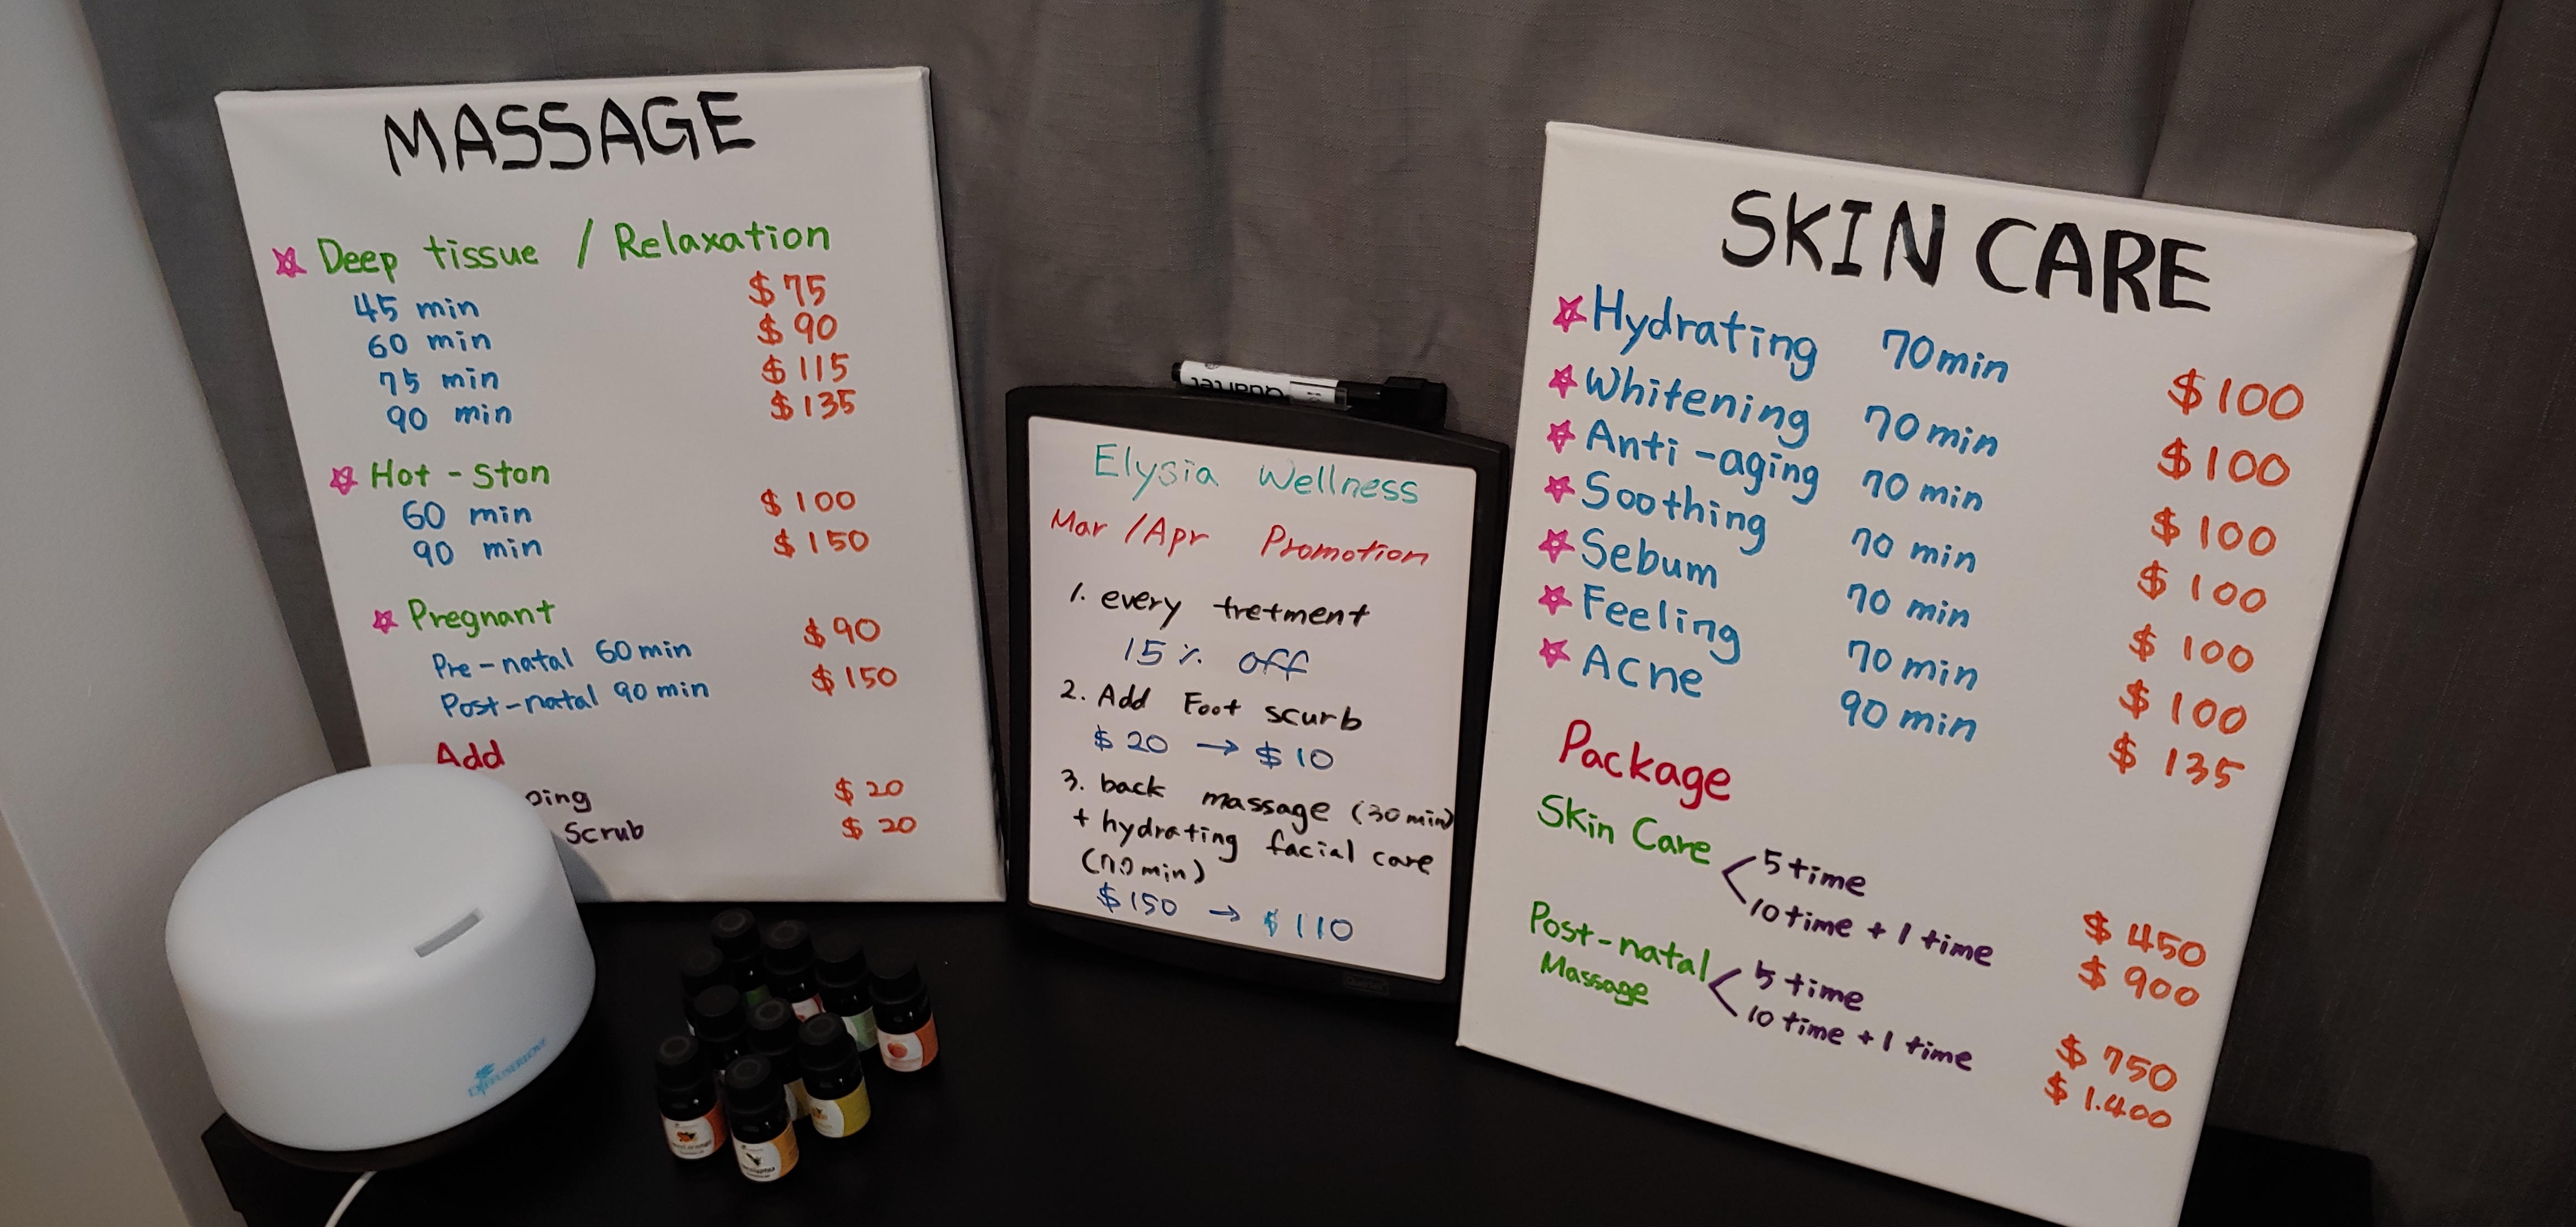 MASSAGE
Deep tissue / Relaxation
45 min $75
60 min $90
75 min $115
90 min $135
Hot - Ston
60 min $100
90 min $150
Pregnant
Pre-natal 60 min $90
Post-natal 90 min $150
Add
$20
Scrub $20
Quartet
Elysia Wellness
Mar /Apr Promotion
1. every tretment
15% off
2. Add Foot scurb
$20 → $10
3. back massage (30 min)
+ hydrating facial care
(70 min)
$150 → $110
SKIN CARE
Hydrating 70min $100
Whitening 70min $100
Anti-aging 70 min $100
Soothing 70 min $100
Sebum 70 min $100
Feeling 70 min $100
Acne 90 min $135
Package
Skin Care
5 time $450
10 time + 1 time $900
Post-natal
Massage
5 time $750
10 time + 1 time $1.400